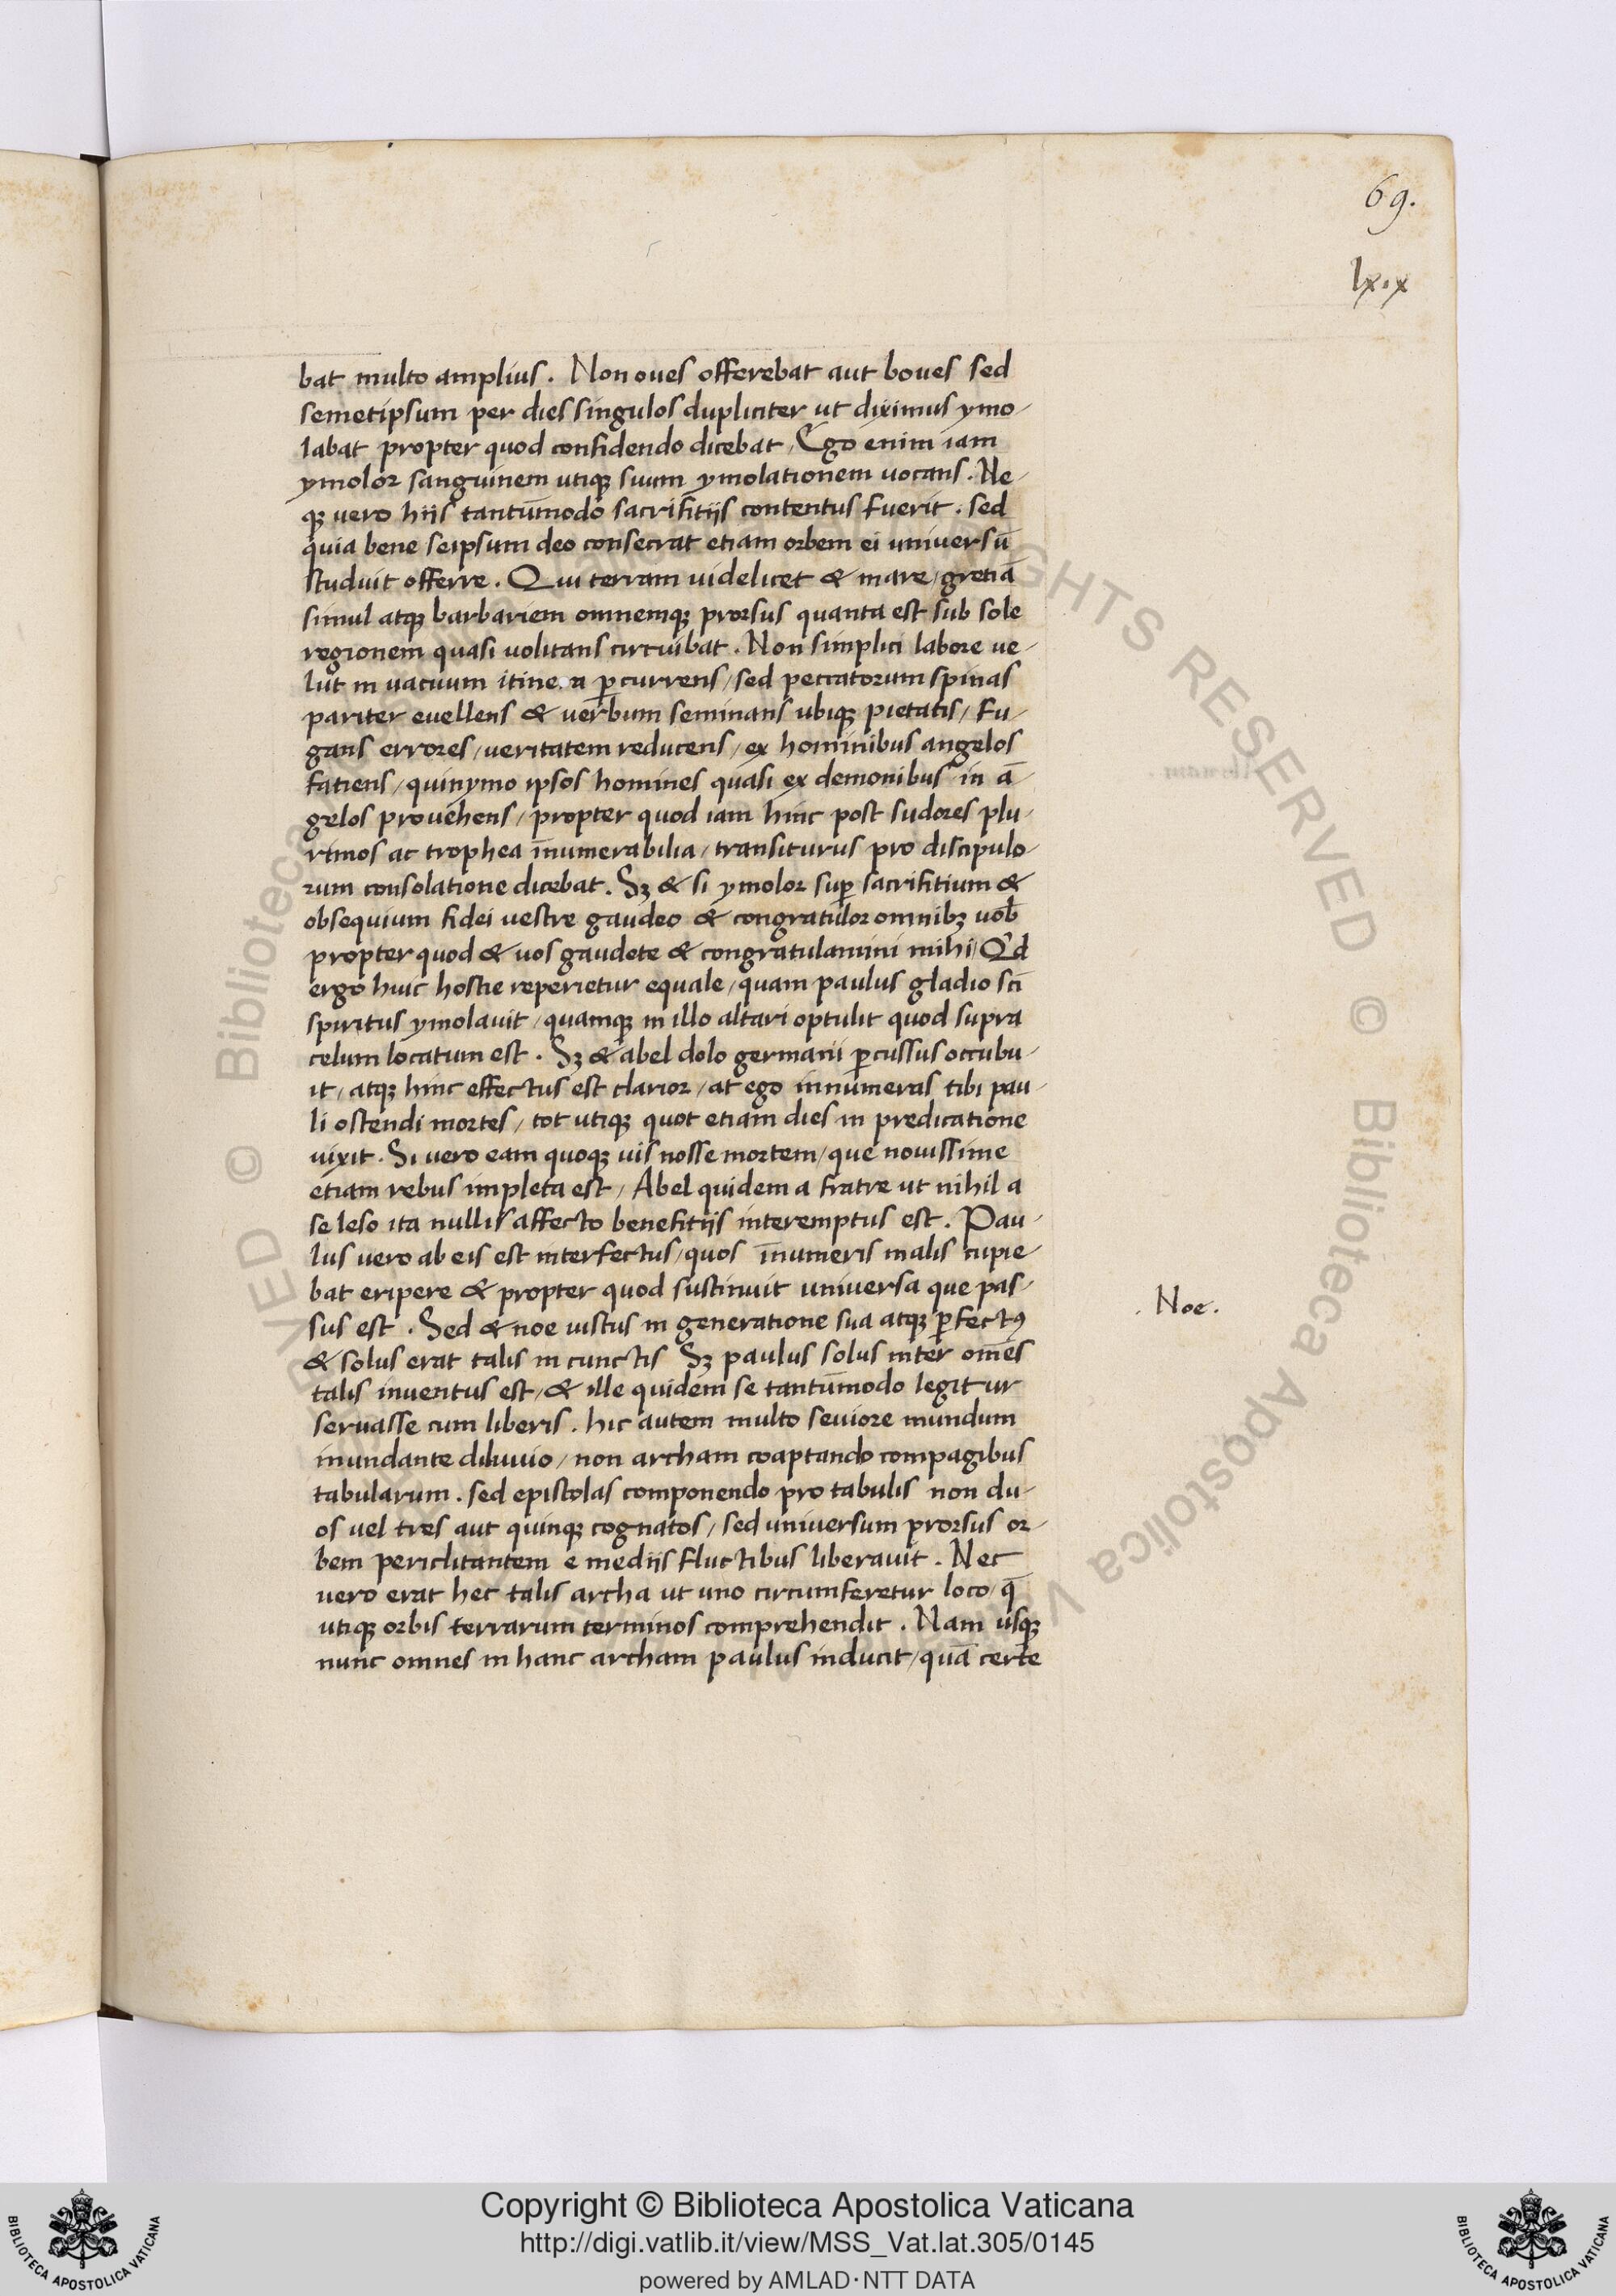 69.
lxix
bat multo amplius. Non oues offerebat aut boues sed
semetipsum per dies singulos dupliciter ut diximus ymo/
labat propter quod confidendo dicebat, Ego enim iam
ymolor sanguinem utiqꝫ suum ymolationem uocans. Ne/
qꝫ vero hijs tantu̅modo sacrifitijs contentus fuerit. sed
quia bene seipsum deo consecrat etiam orbem ei universu̅
studuit offerre. Qui terram uidelicet & mare/gretia̅
simul atqꝫ barbariem omnemqꝫ prorsus quanta est sub sole
regionem quasi uolitans circuibat. Non simplici labore ue/
lut in uacuum itine a ꝑcurrens/sed peccatorum spinas
pariter euellens & verbum seminans ubiqꝫ pietatis/fu/
gans errores/veritatem reducens/ex hominibus angelos
fatiens/quinymo ipsos homines quasi ex demonibus in a̅/
gelos prouehens/propter quod iam hinc post sudores plu/
rimos ac trophea i̅numerabilia/transiturus pro discipulo/
rum consolatione dicebat. Sꝫ & si ymolor suꝑ sacrifitium &
obsequium fidei vestre gaudeo & congratulor omnibꝫ uob̅
propter quod & uos gaudete & congratulamini mihi/Qd
ergo huic hostie reperietur equale/quam paulus gladio sc̅i
spiritus ymolauit/quamqꝫ in illo altari optulit quod supra
celum locatum est. Sꝫ & abel dolo germani ꝑcussus occubu/
it/atqꝫ hinc effectus est clarior/at ego innumeras tibi pau/
li ostendi mortes/tot utiqꝫ quot etiam dies in predicatione
uixit. Si vero eam quoqꝫ uis nosse mortem/que nouissime
etiam rebus impleta est/Abel quidem a fratre ut nihil a
se leso ita nullis affecto benefitijs interemptus est. Pau/
lus vero ab eis est interfectus/quos i̅numeris malis cupie/
bat eripere & propter quod sustinuit universa que pas/
sus est. Sed & noe iustus in generatione sua atqꝫ ꝑfectꝰ
. Noe.
& solus erat talis in cunctis Sꝫ paulus solus inter om̅es
talis inventus est/& ille quidem se tantu̅modo legitur
seruasse cum liberis. hic autem multo seuiore mundum
inundante diluuio/non archam coaptando compagibus
tabularum. sed epistolas componendo pro tabulis non du/
os vel tres aut quinqꝫ cognatos/sed universum prorsus or/
bem periclitantem e medijs fluctibus liberauit. Nec
vero erat hec talis archa ut uno circumferetur loco/q̅
utiqꝫ orbis terrarum terminos comprehendit. Nam usqꝫ
nunc omnes in hanc archam paulus inducit/qua̅ certe
Copyright © Biblioteca Apostolica Vaticana
http://digi.vatlib.it/view/MSS_Vat.lat.305/0145
powered by AMLAD·NTT DATA